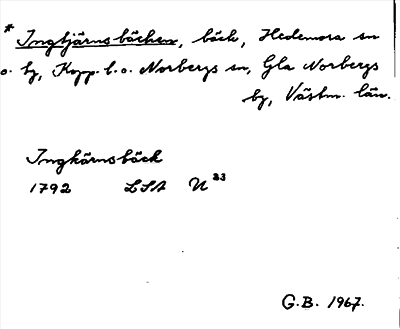 * Ingtjärnsbäcken, bäck, Hedemora sn
o. by, Kopp. l. o. Norbergs sn, Gla Norbergs
by, Västm. län.
Ingkärnsbäck
1792 LSA U 23
G.B. 1967.